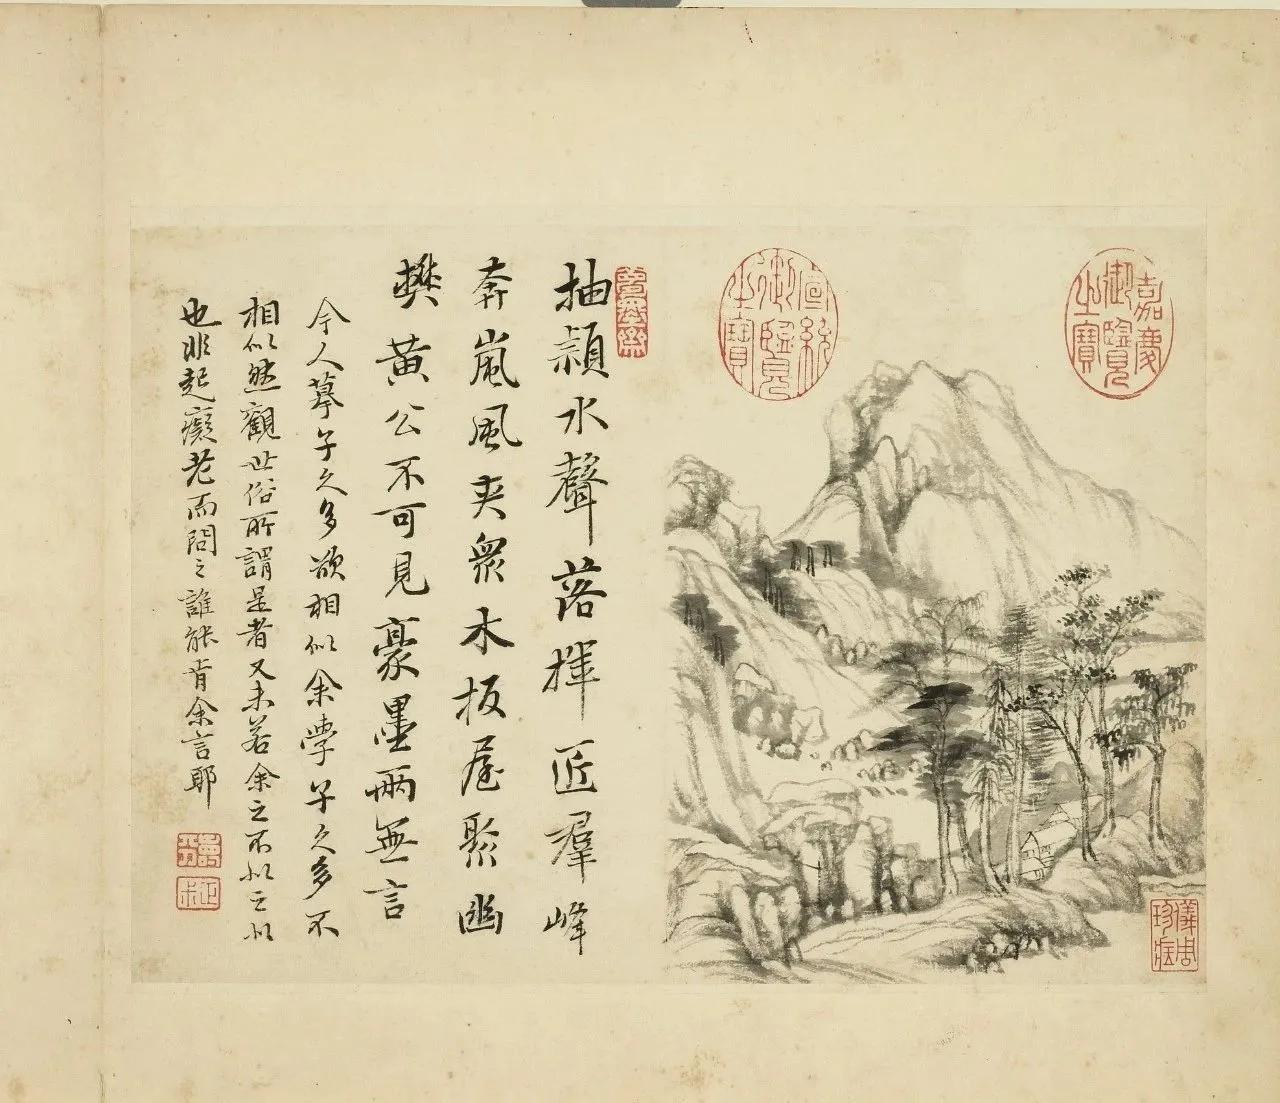 嘉慶
御覽
之寶
宣統
御覽
之寶
儀周
珍藏
抽頴水聲落揮匠羣峰
奔嵐風夾衆木板屋聚幽
樊黃公不可見豪墨兩無言
今人摹子久多欲相似余學子久多不
相似然觀世俗所謂是者又未若余之不似之似
也非起癡老而問之誰能肯余言耶
壽平
正叔